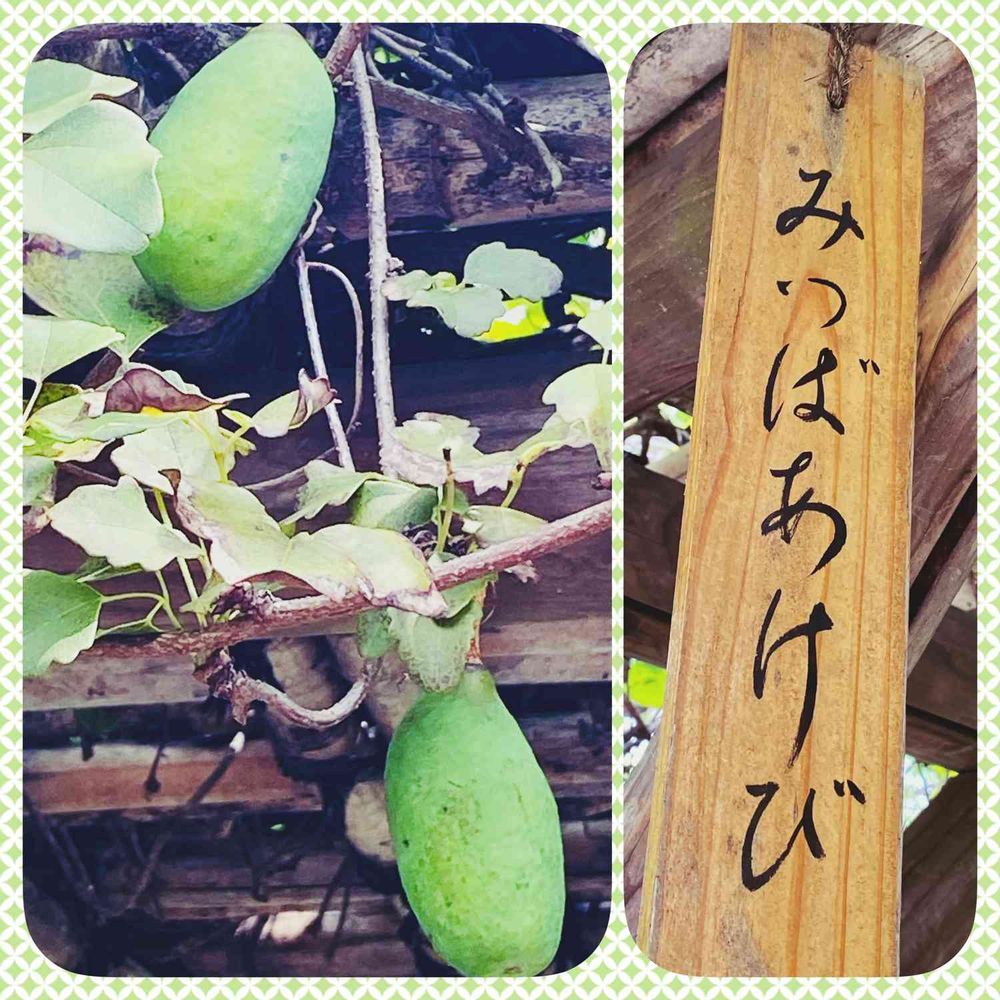 みつばあけび